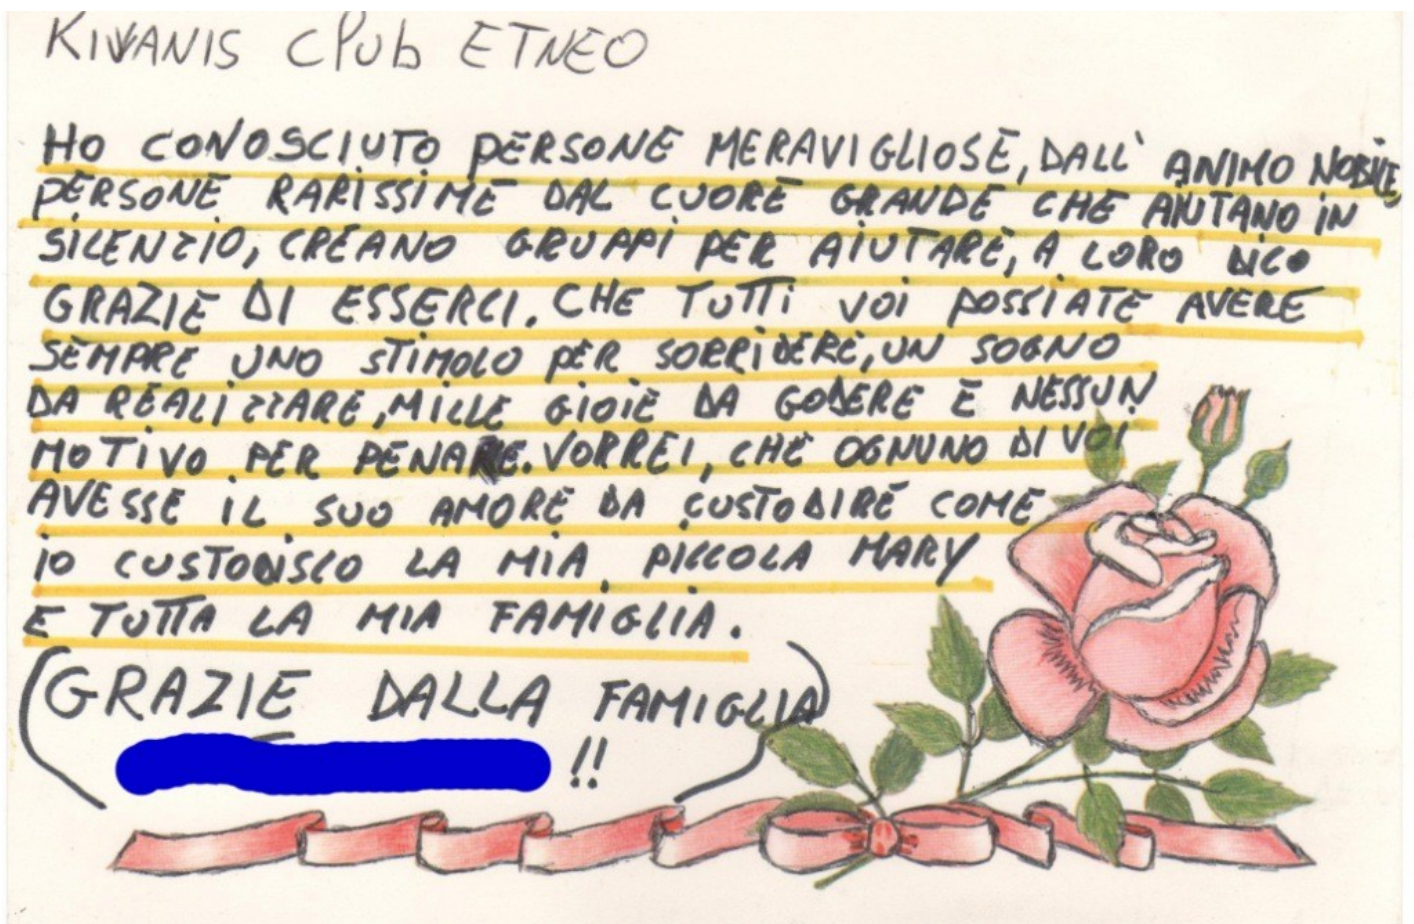 KIWANIS CLUB ETNEO
HO CONOSCIUTO PERSONE MERAVIGLIOSE, DALL' ANIMO NOBILE,
PERSONE RARISSIME DAL CUORE GRANDE CHE AIUTANO IN
SILENZIO, CREANO GRUPPI PER AIUTARE, A LORO DICO
GRAZIE DI ESSERCI. CHE TUTTI VOI POSSIATE AVERE
SEMPRE UNO STIMOLO PER SORRIDERE, UN SOGNO
DA REALIZZARE, MILLE GIOIE DA GODERE E NESSUN
MOTIVO PER PENARE. VORREI, CHE OGNUNO DI VOI
AVESSE IL SUO AMORE DA CUSTODIRE COME
IO CUSTODISCO LA MIA PICCOLA MARY
E TUTTA LA MIA FAMIGLIA.
(GRAZIE DALLA FAMIGLIA
!!)